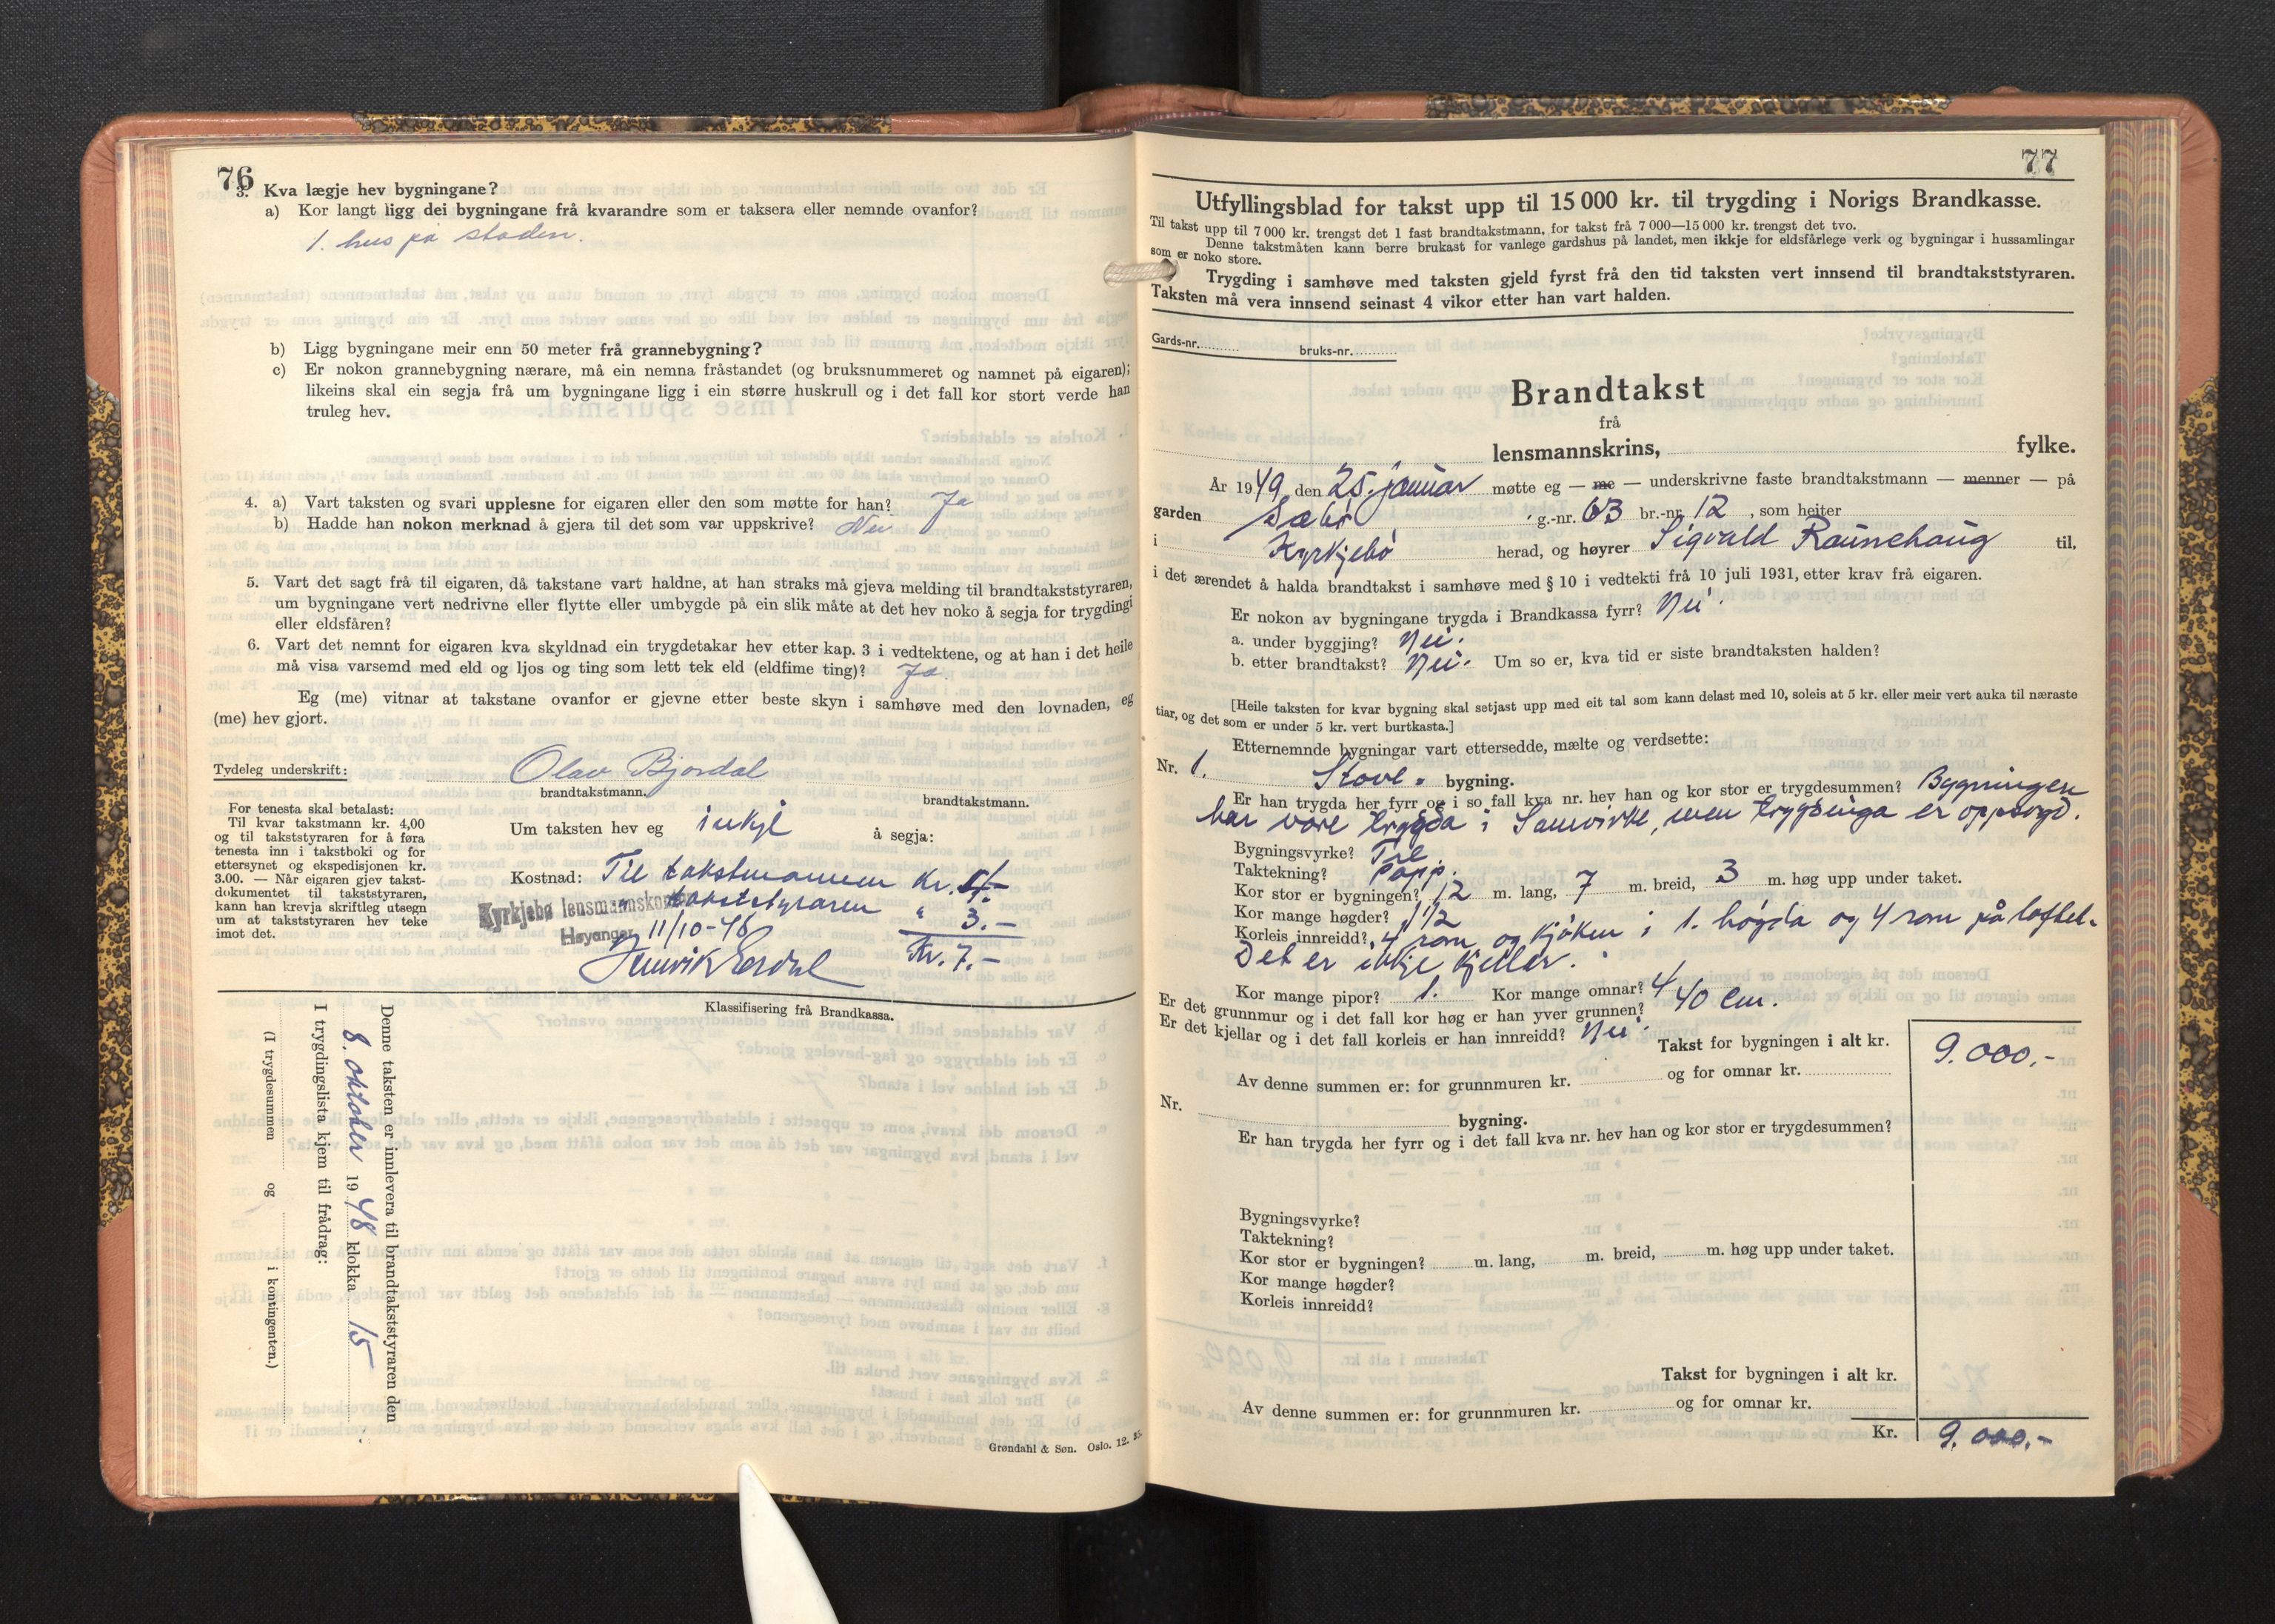 76
3. Kva lægje hev bygningane?
a) Kor langt ligg dei bygningane frå kvarandre som er taksera eller nemnde ovanfor?
1. hus på staden.
b) Ligg bygningane meir enn 50 meter frå grannebygning?
c) Er nokon grannebygning nærare, må ein nemna fråstandet (og bruksnummeret og namnet på eigaren);
likeins skal ein segja frå um bygningane ligg i ein større huskrull og i det fall kor stort verde han
truleg hev.
4. a) Vart taksten og svari upplesne for eigaren eller den som møtte for han? Ja
b) Hadde han nokon merknad å gjera til det som var uppskrive? Nei
5. Vart det sagt frå til eigaren, då takstane vart haldne, at han straks må gjeva melding til brandtakststyraren,
um bygningane vert nedrivne eller flytte eller umbygde på ein slik måte at det hev noko å segja for trygdingi
eller eldsfåren?
6. Vart det nemnt for eigaren kva skyldnad ein trygdetakar hev etter kap. 3 i vedtektene, og at han i det heile
må visa varsemd med eld og ljos og ting som lett tek eld (eldfime ting)? Ja.
Eg (me) vitnar at takstane ovanfor er gjevne etter beste skyn i samhøve med den lovnaden, eg
(me) hev gjort.
Tydeleg underskrift: Olav Bjordal
brandtakstmann. brandtakstmann.
For tenesta skal betalast:
Til kvar takstmann kr. 4,00
og til takststyraren for å føra
tenesta inn i takstboki og for
ettersynet og ekspedisjonen kr.
3.00. — Når eigaren gjev takst-
dokumentet til takststyraren,
kann han krevja skriftleg utsegn
um at takststyraren hev teke
imot det.
Um taksten hev eg inkje å segja:
Kostnad: Til takstmannen Kr. 4.-
" takststyraren " 3.-
Kr. 7.-
Kyrkjebø lensmannskontor
Høyanger 11/10-48
Klassifisering frå Brandkassa.
Denne taksten er innlevera til brandtakststyraren den
8. oktober 1948 klokka 15
I trygdingslista kjem til frådrag:
(I trygdesummen og i kontingenten.)
Grøndahl & Søn. Oslo. 12. 35.
77
Utfyllingsblad for takst upp til 15 000 kr. til trygding i Norigs Brandkasse.
Til takst upp til 7 000 kr. trengst det 1 fast brandtakstmann, for takst frå 7 000—15 000 kr. trengst det tvo.
Denne takstmåten kann berre brukast for vanlege gardshus på landet, men ikkje for eldsfårlege verk og bygningar i hussamlingar
som er noko store.
Trygding i samhøve med taksten gjeld fyrst frå den tid taksten vert innsend til brandtakststyraren.
Taksten må vera innsend seinast 4 vikor etter han vart halden.
Gards-nr. bruks-nr.
Brandtakst
frå
lensmannskrins, fylke.
År 1949, den 25. januar møtte eg — me — underskrivne faste brandtakstmann — menner — på
garden Sæbø g.-nr. 63 br.-nr. 12, som heiter
i Kyrkjebø herad, og høyrer Sigvald Raunehaug til,
i det ærendet å halda brandtakst i samhøve med § 10 i vedtekti frå 10 juli 1931, etter krav frå eigaren.
Er nokon av bygningane trygda i Brandkassa fyrr? Nei.
a. under byggjing? Nei.
b. etter brandtakst? Nei. Um so er, kva tid er siste brandtaksten halden?
[Heile taksten for kvar bygning skal setjast upp med eit tal som kann delast med 10, soleis at 5 kr. eller meir vert auka til næraste
tiar, og det som er under 5 kr. vert burtkasta.]
Etternemnde bygningar vart ettersedde, mælte og verdsette:
Nr. 1. Stove- bygning.
Er han trygda her fyrr og i so fall kva nr. hev han og kor stor er trygdesummen? Bygningen
har vore trygda i Samvirke, men trygdinga er oppsagd.
Bygningsvyrke? Tre
Taktekning? Papp.
Kor stor er bygningen? 12 m. lang, 7 m. breid, 3 m. høg upp under taket.
Kor mange høgder? 1 1/2
Korleis innreidd? 4 rom og kjøken i 1. høgda og 4 rom på loftet.
Det er ikkje kjellar.
Kor mange pipor? 1. Kor mange omnar? 4
Er det grunnmur og i det fall kor høg er han yver grunnen? 40 cm.
Er det kjellar og i det fall korleis er han innreidd? Nei.
Takst for bygningen i alt kr. 9.000,-
Av denne summen er: for grunnmuren kr. og for omnar kr.
Nr. bygning.
Er han trygda her fyrr og i det fall kva nr. hev han og kor stor er trygdesummen?
Bygningsvyrke?
Taktekning?
Kor stor er bygningen? m. lang, m. breid, m. høg upp under taket.
Kor mange høgder?
Korleis innreidd?
Takst for bygningen i alt kr.
Av denne summen er: for grunnmuren kr. og for omnar kr.
Kr. 9.000,-